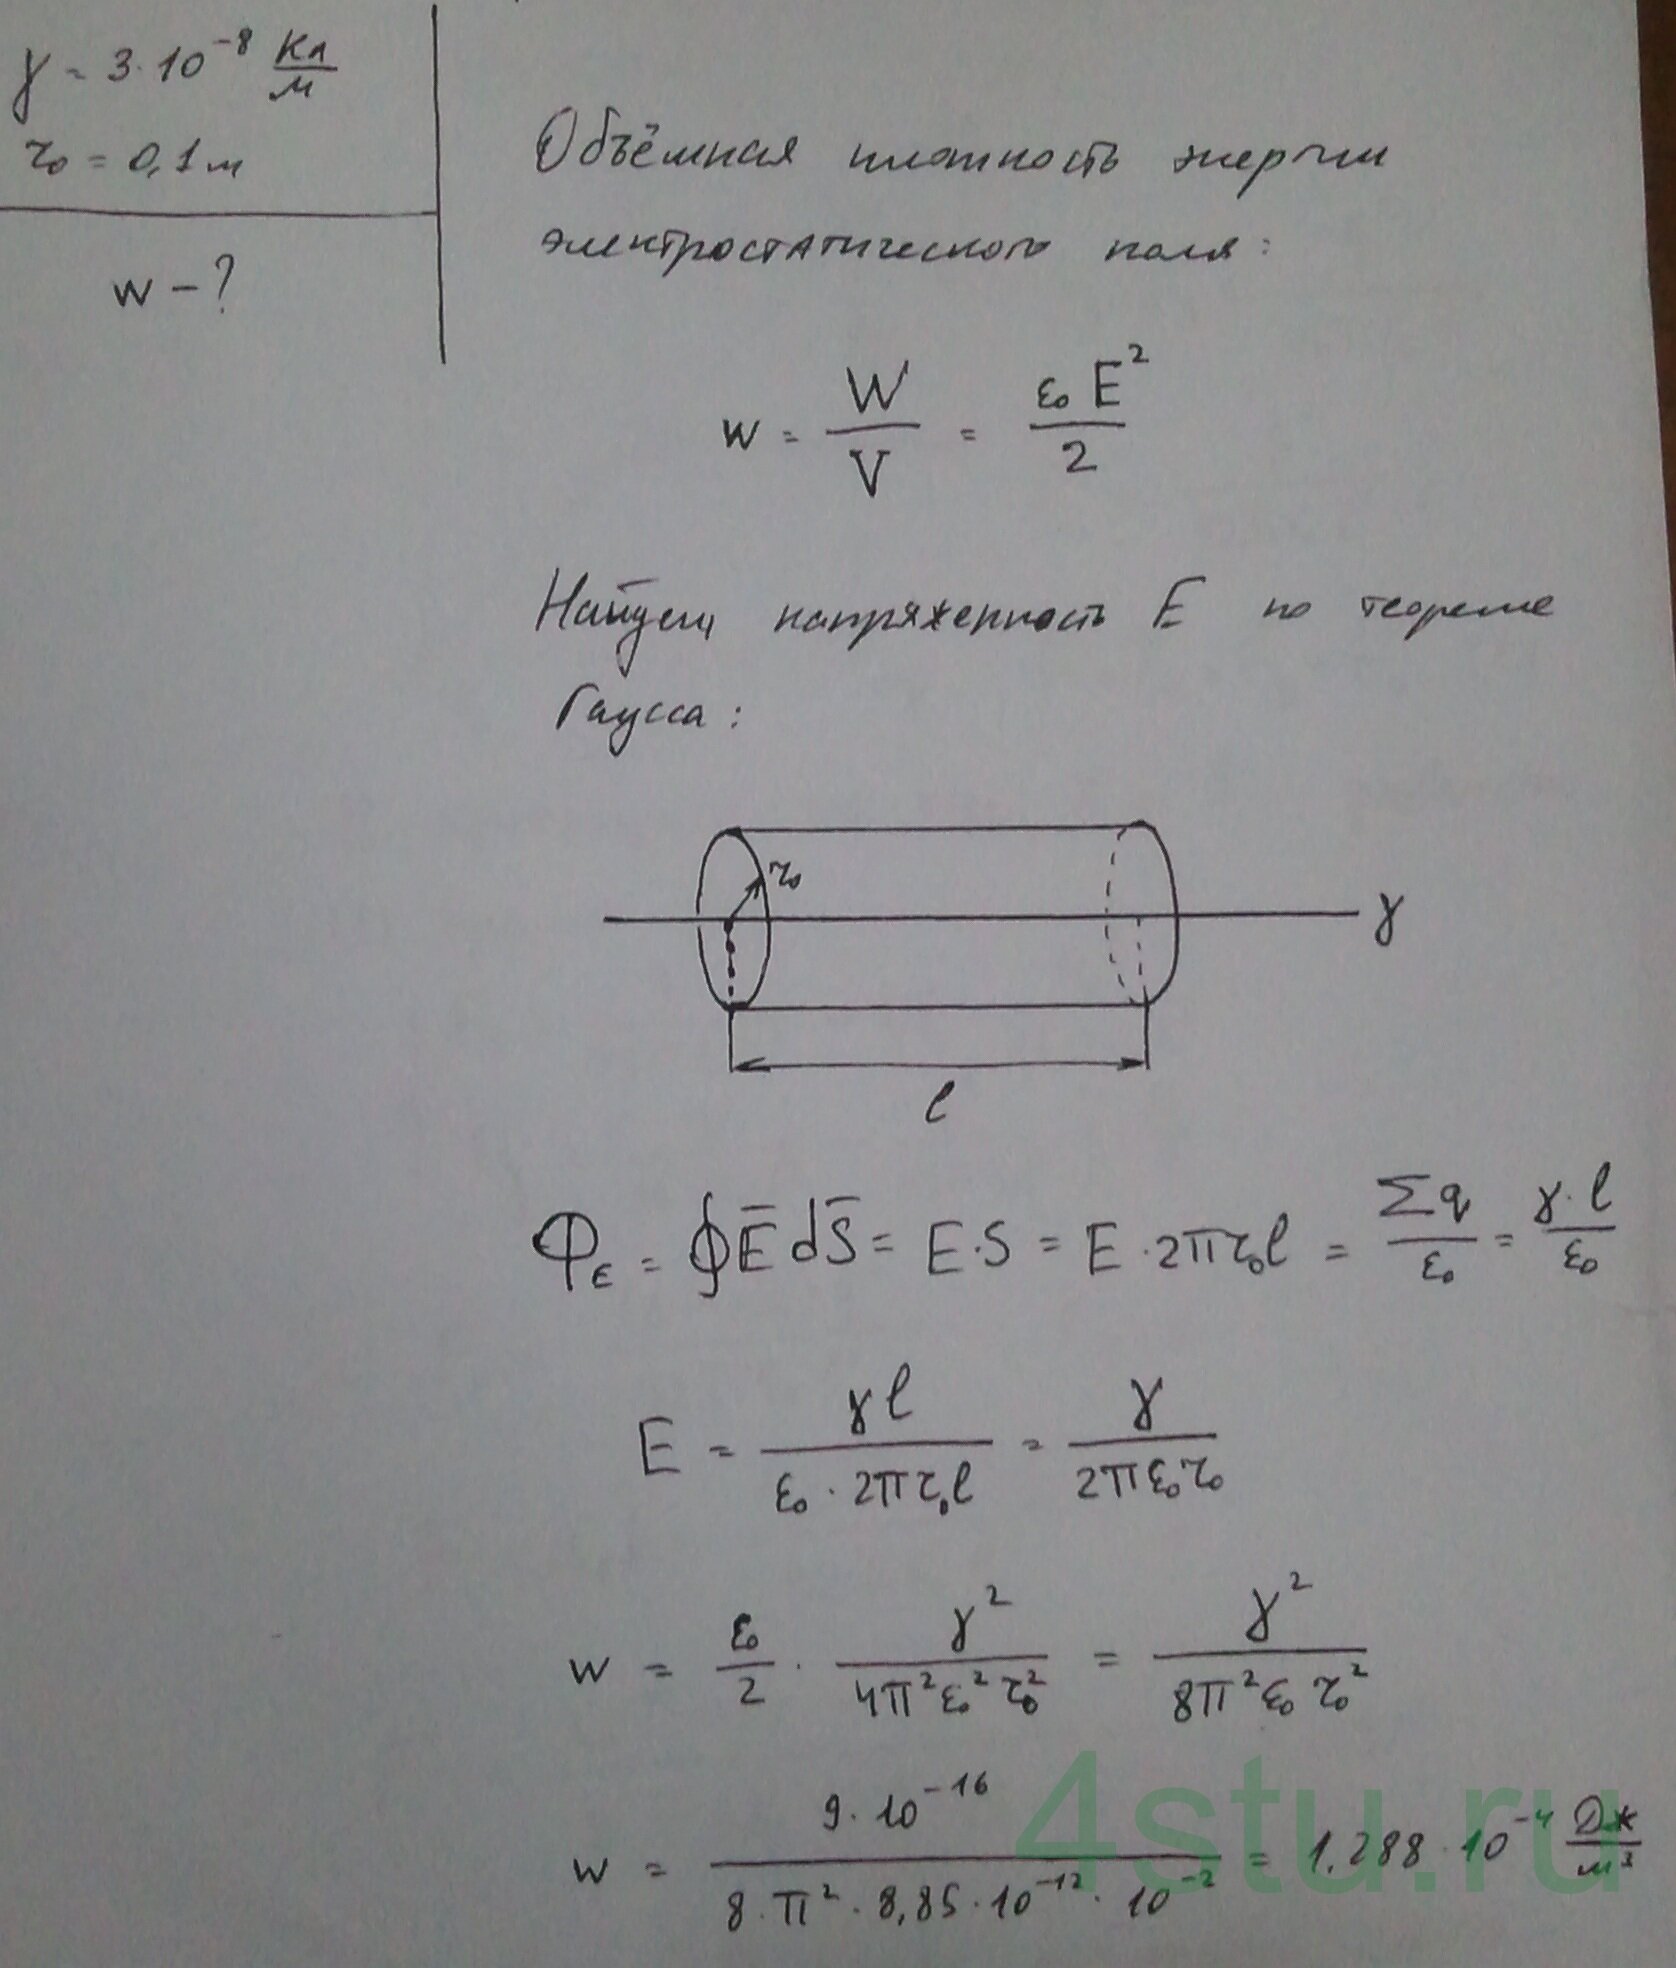 γ = 3·10⁻⁸ Кл/м
r₀ = 0,1 м
w – ?
Объёмная плотность энергии
электростатического поля:
w = W/V = ε₀E²/2
Найдем напряженность E по теореме
Гаусса:
r₀
γ
l
Φ_E = ∮E̅ dS̅ = E·S = E·2πr₀l = Σq/ε₀ = γ·l/ε₀
E = γl/(ε₀·2πr₀l) = γ/(2πε₀r₀)
w = ε₀/2 · γ²/(4π²ε₀²r₀²) = γ²/(8π²ε₀r₀²)
w = 9·10⁻¹⁶/(8·π²·8,85·10⁻¹²·10⁻²) = 1,288·10⁻⁴ Дж/м³
4stu.ru